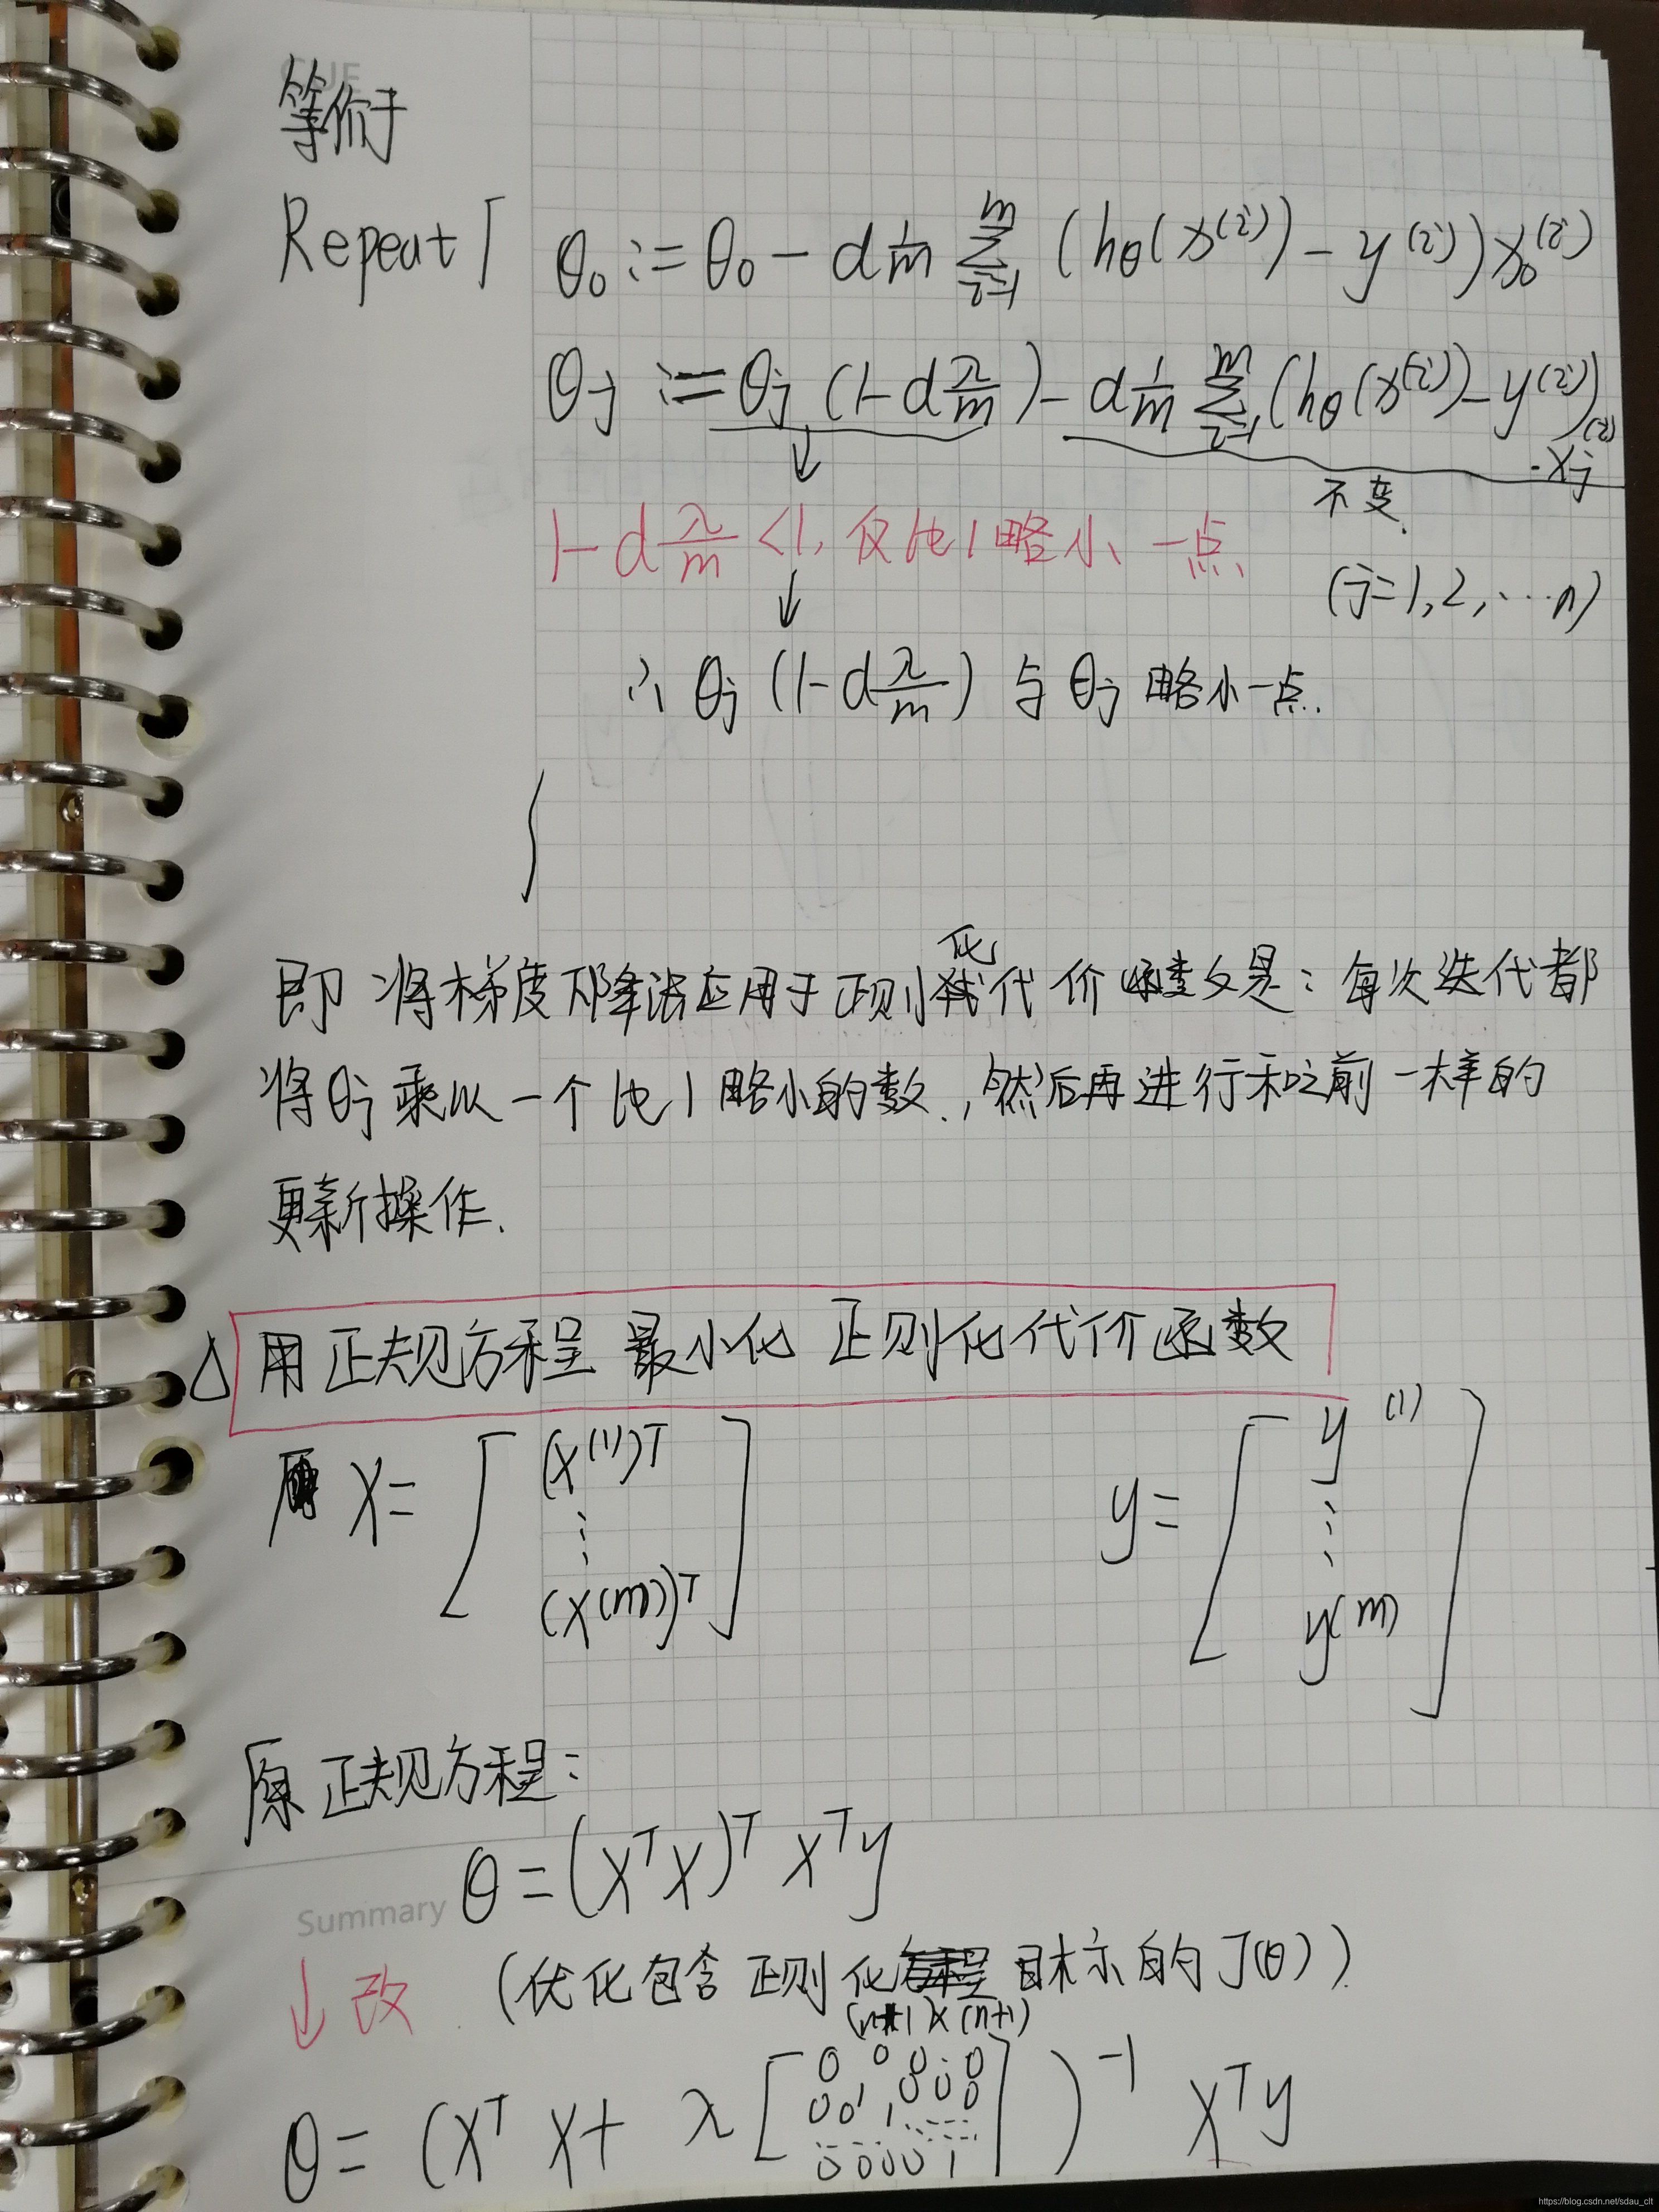 CUE
等价于
Repeat{ θ₀ := θ₀ - α 1/m Σ_{i=1}^{m} (hθ(x^(i)) - y^(i)) x₀^(i)
θj := θj (1-α λ/m) - α 1/m Σ_{i=1}^{m} (hθ(x^(i)) - y^(i))
·xj^(i)
↓ 不变.
1-α λ/m <1, 仅比1略小一点
(j=1,2,…n)
↓
∴ θj (1-α λ/m) 与 θj 略小一点.
}
即 将梯度下降法应用于正则化代价函数又是: 每次迭代都
将θj乘以一个比1略小的数., 然后再进行和之前一样的
更新操作.
△ 用正规方程 最小化 正则化代价函数
X= [ (x^(1))^T ⋮ (x^(m))^T ] y= [ y^(1) ⋮ y^(m) ]
原正规方程:
θ=(X^T X)^T X^T y
Summary
↓改. (优化包含正则化 目标的J(θ)).
(n+1)×(n+1)
θ= (X^T X+ λ [
0 0 0 · 0
0 0 1 1 0 0 0
0 0 0 0 1
] )^-1 X^T y
https://blog.csdn.net/sdau_clt